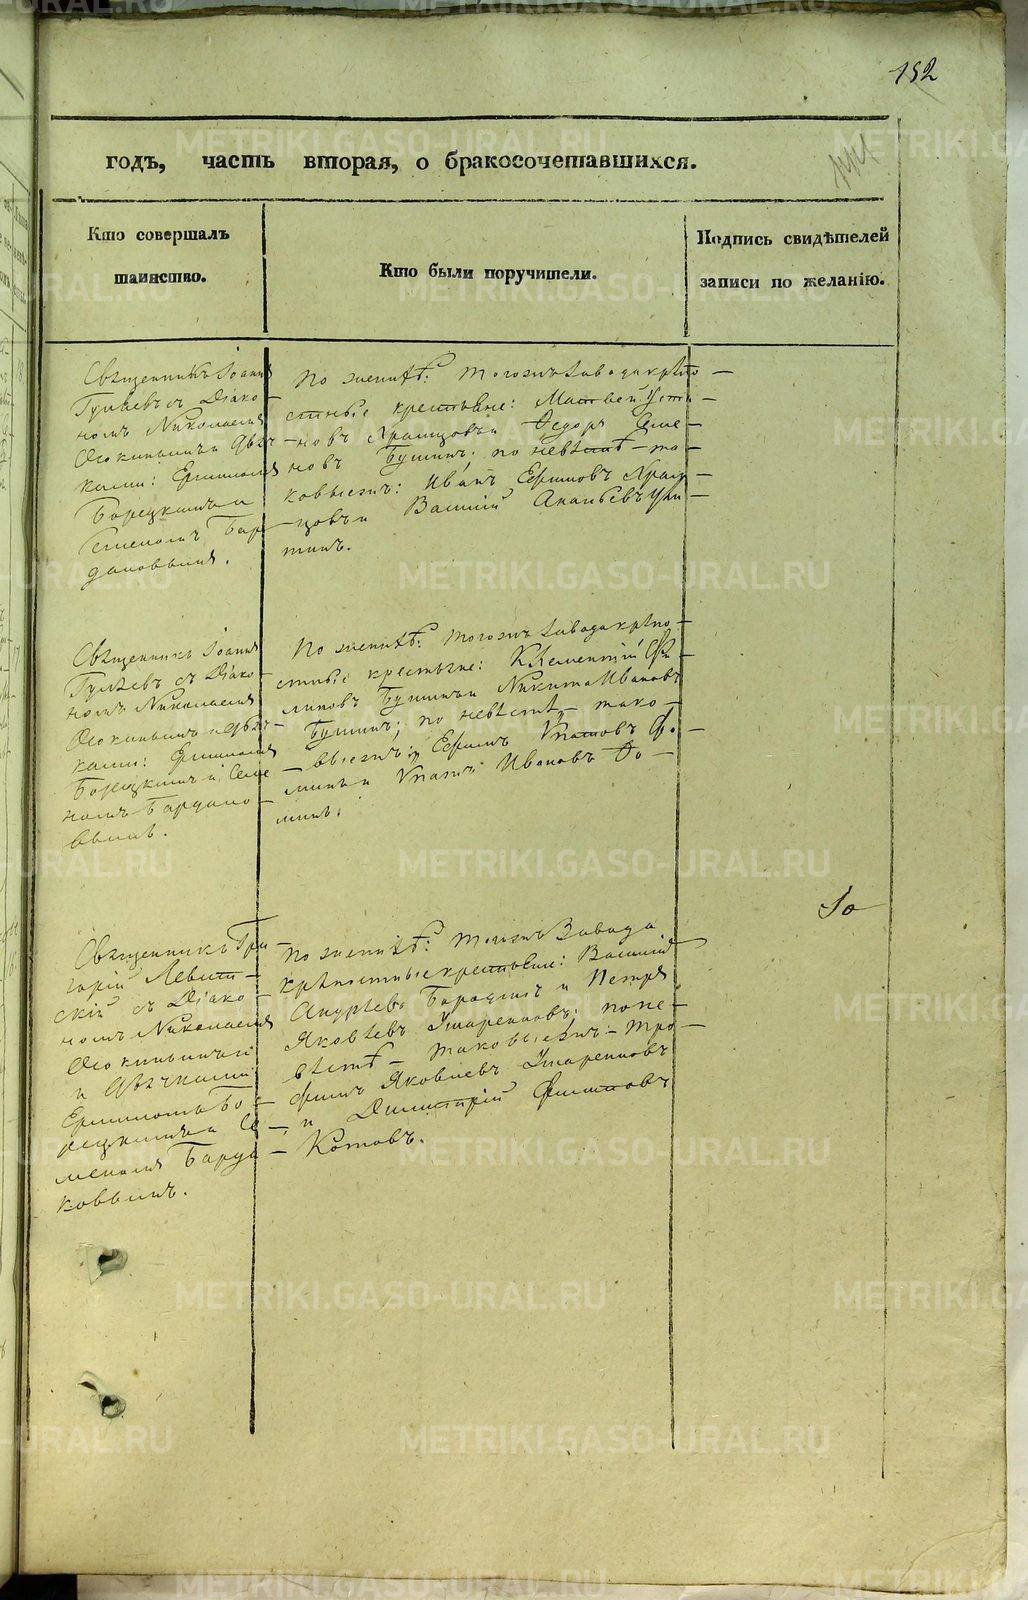 152
годъ, часть вторая, о бракосочетавшихся.
Кто совершалъ
таинство.
Кто были поручители.
Подпись свидѣтелей
записи по желанію.
Священникъ Іоаннъ
Гуляевъ съ Діако-
номъ Николаемъ
и Дьяч-
ками: Ермилomъ
Борецкимъ и
Семеномъ Бар-
даковымъ.
По женихѣ: тогожъ Завода крѣпо-
стные крестьяне: Матвей Усти-
новъ Храмцовъ и Федоръ Семе-
новъ Бушинъ; по невѣстѣ-та-
ковыежъ: Иванъ Ефимовъ Храм-
цовъ и Василій Ананьевъ
Священникъ Іоаннъ
Гуляевъ съ Діако-
номъ Николаемъ
и Дьяч-
ками: Ермиломъ
Борецкимъ и Семе-
номъ Бардако-
вымъ.
По женихѣ: тогожъ Завода крѣпо-
стные крестьяне: Клементій Фи-
липовъ Бушинъ и Никита Ивановъ
Бушинъ; по невѣстѣ, тако-
выежъ: Ефимъ Ипатовъ Фо-
минъ и Ипатъ Ивановъ Фо-
минъ.
Священникъ Гри-
горій Левит-
скій съ Діако-
номъ Николаемъ
и Дьячками
Ермиломъ Бо-
рецкимъ и Се-
меномъ Барда-
ковымъ.
По женихѣ: тогожъ Завода
крѣпостные крестьяне: Василій
Андреевъ и Петръ
Яковлевъ по не-
вѣстѣ - таковыежъ - Тро-
фимъ Яковлевъ
и Димитрій Филиповъ
Котовъ.
METRIKI.GASO-URAL.RU